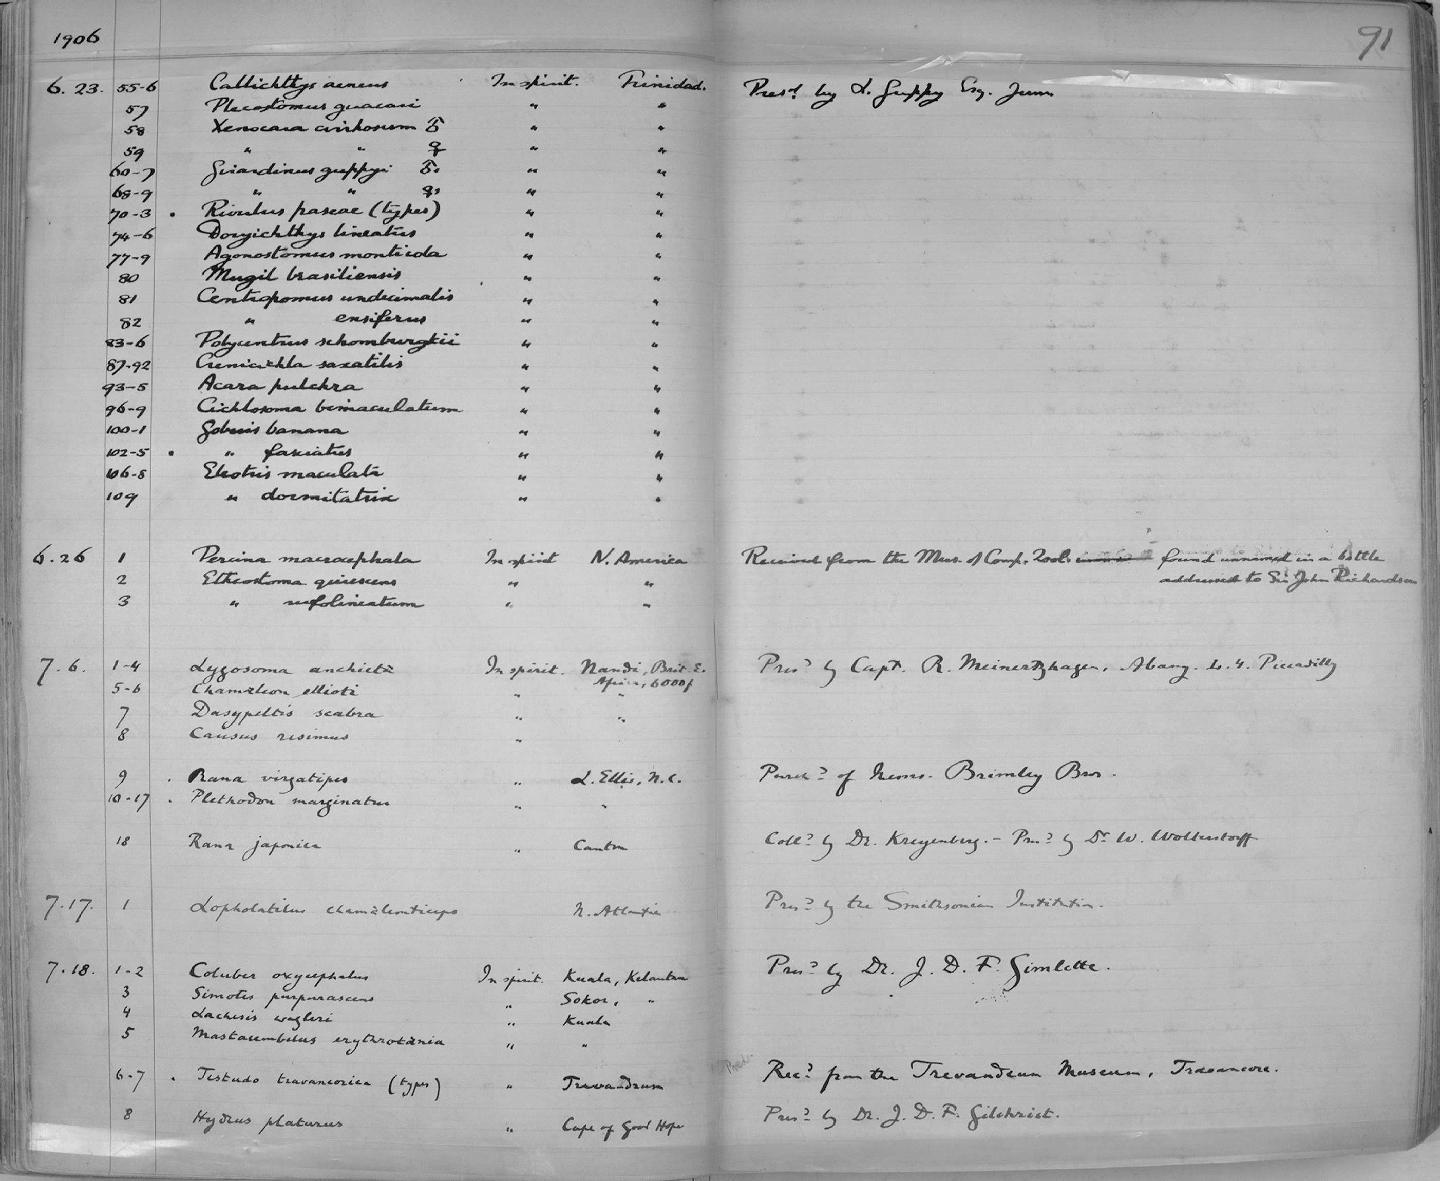 1906
91
6. 23. 55-6 Callichthys aeneus In spirit. Trinidad. Presd by L. Guppy Esq. Junr
57 Plecostomus guacari " "
58 Xenocara cirrhosum ♂ " "
59 " " ♀ " "
60-7 Girardinus guppyi ♂. " "
68-9 " " ♀s " "
70-3 • Rivulus haseae (types) " "
74-6 Doryichthys lineatus " "
77-9 Agonostomus monticola " "
80 Mugil brasiliensis " "
81 Centropomus undecimalis " "
82 " ensiferus " "
83-6 Polycentrus schomburgkii " "
87-92 Crenicichla saxatilis " "
93-5 Acara pulchra " "
96-9 Cichlosoma bimaculatum " "
100-1 Gobius banana " "
102-5 • " fasciatus " "
106-8 Eleotris maculata " "
109 " dormitatrix " "
6.26 1 Percina macrocephala In spirit N. America Received from the Mus. of Comp. Zool. found unnamed in a bottle
addressed to Sir John Richardson
2 Etheostoma " "
3 " rufolineatum " "
7. 6. 1-4 Lygosoma anchietæ In spirit. Nandi, Brit. E. Presd by Capt. R. Meinertzhagen, Albany. L. 4. Piccadilly
Africa, 6000f
5-6 Chamæleon ellioti " "
7 Dasypeltis scabra " "
8 Causus resimus "
9 . Rana virgatipes " L. Ellis, N.C. Purchd of Messrs. Brimley Bros.
10-17 . Plethodon marginatus " "
18 Rana japonica " Canton Colld by Dr. Kreyenberg. - Presd by Dr W. Wolterstorff
7.17. 1 Lopholatilus chamæleonticeps N. Atlantic Presd by the Smithsonian Institution.
7.18. 1-2 Coluber oxycephalus In spirit. Kuala, Kelantan Presd by Dr. J. D. F. Gimlette.
3 Simotes purpurascens " Sokor, "
4 Lachesis wagleri " Kuala
5 Mastacembelus erythrotænia " "
6-7 . Testudo travancorica (types) " Trevandrum Recd from the Trevandrum Museum, Travancore.
8 Hydrus platurus " Cape of Good Hope Presd by Dr. J. D. F. Gilchrist.